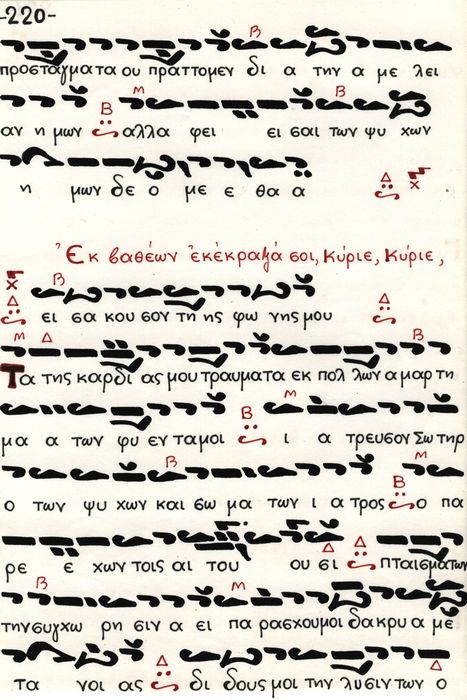 -220-
Β
προσταγματα ου πραττομεν δι α την α με λει
Β Μ Β
αν η μων αλλα φει ει σαι των ψυ χων
η μων δε ο με ε θα α Δ χ
Ἐκ βαθέων ἐκέκραξά σοι, Κύριε, Κύριε,
χ Β
Δ ει σα κου σον τη ης φω νης μου Δ
Μ Δ Β
Τα της καρδι ας μου τραυματα εκ πολ λων α μαρ τη
Β Μ
μα α των φυ εν τα μοι ι α τρευσον Σω τηρ
Β Μ
ο των ψυ χων και σω μα των ι α τρος Β ο πα
ρε ε χων τοις αι του ου σι Δ Δ πταισματων
Β Μ
την συγχω ρη σιν α ει πα ρασχου μοι δα κρυ α με
Δ Δ
τα νοι ας δι δους μοι την λυσιν των ο